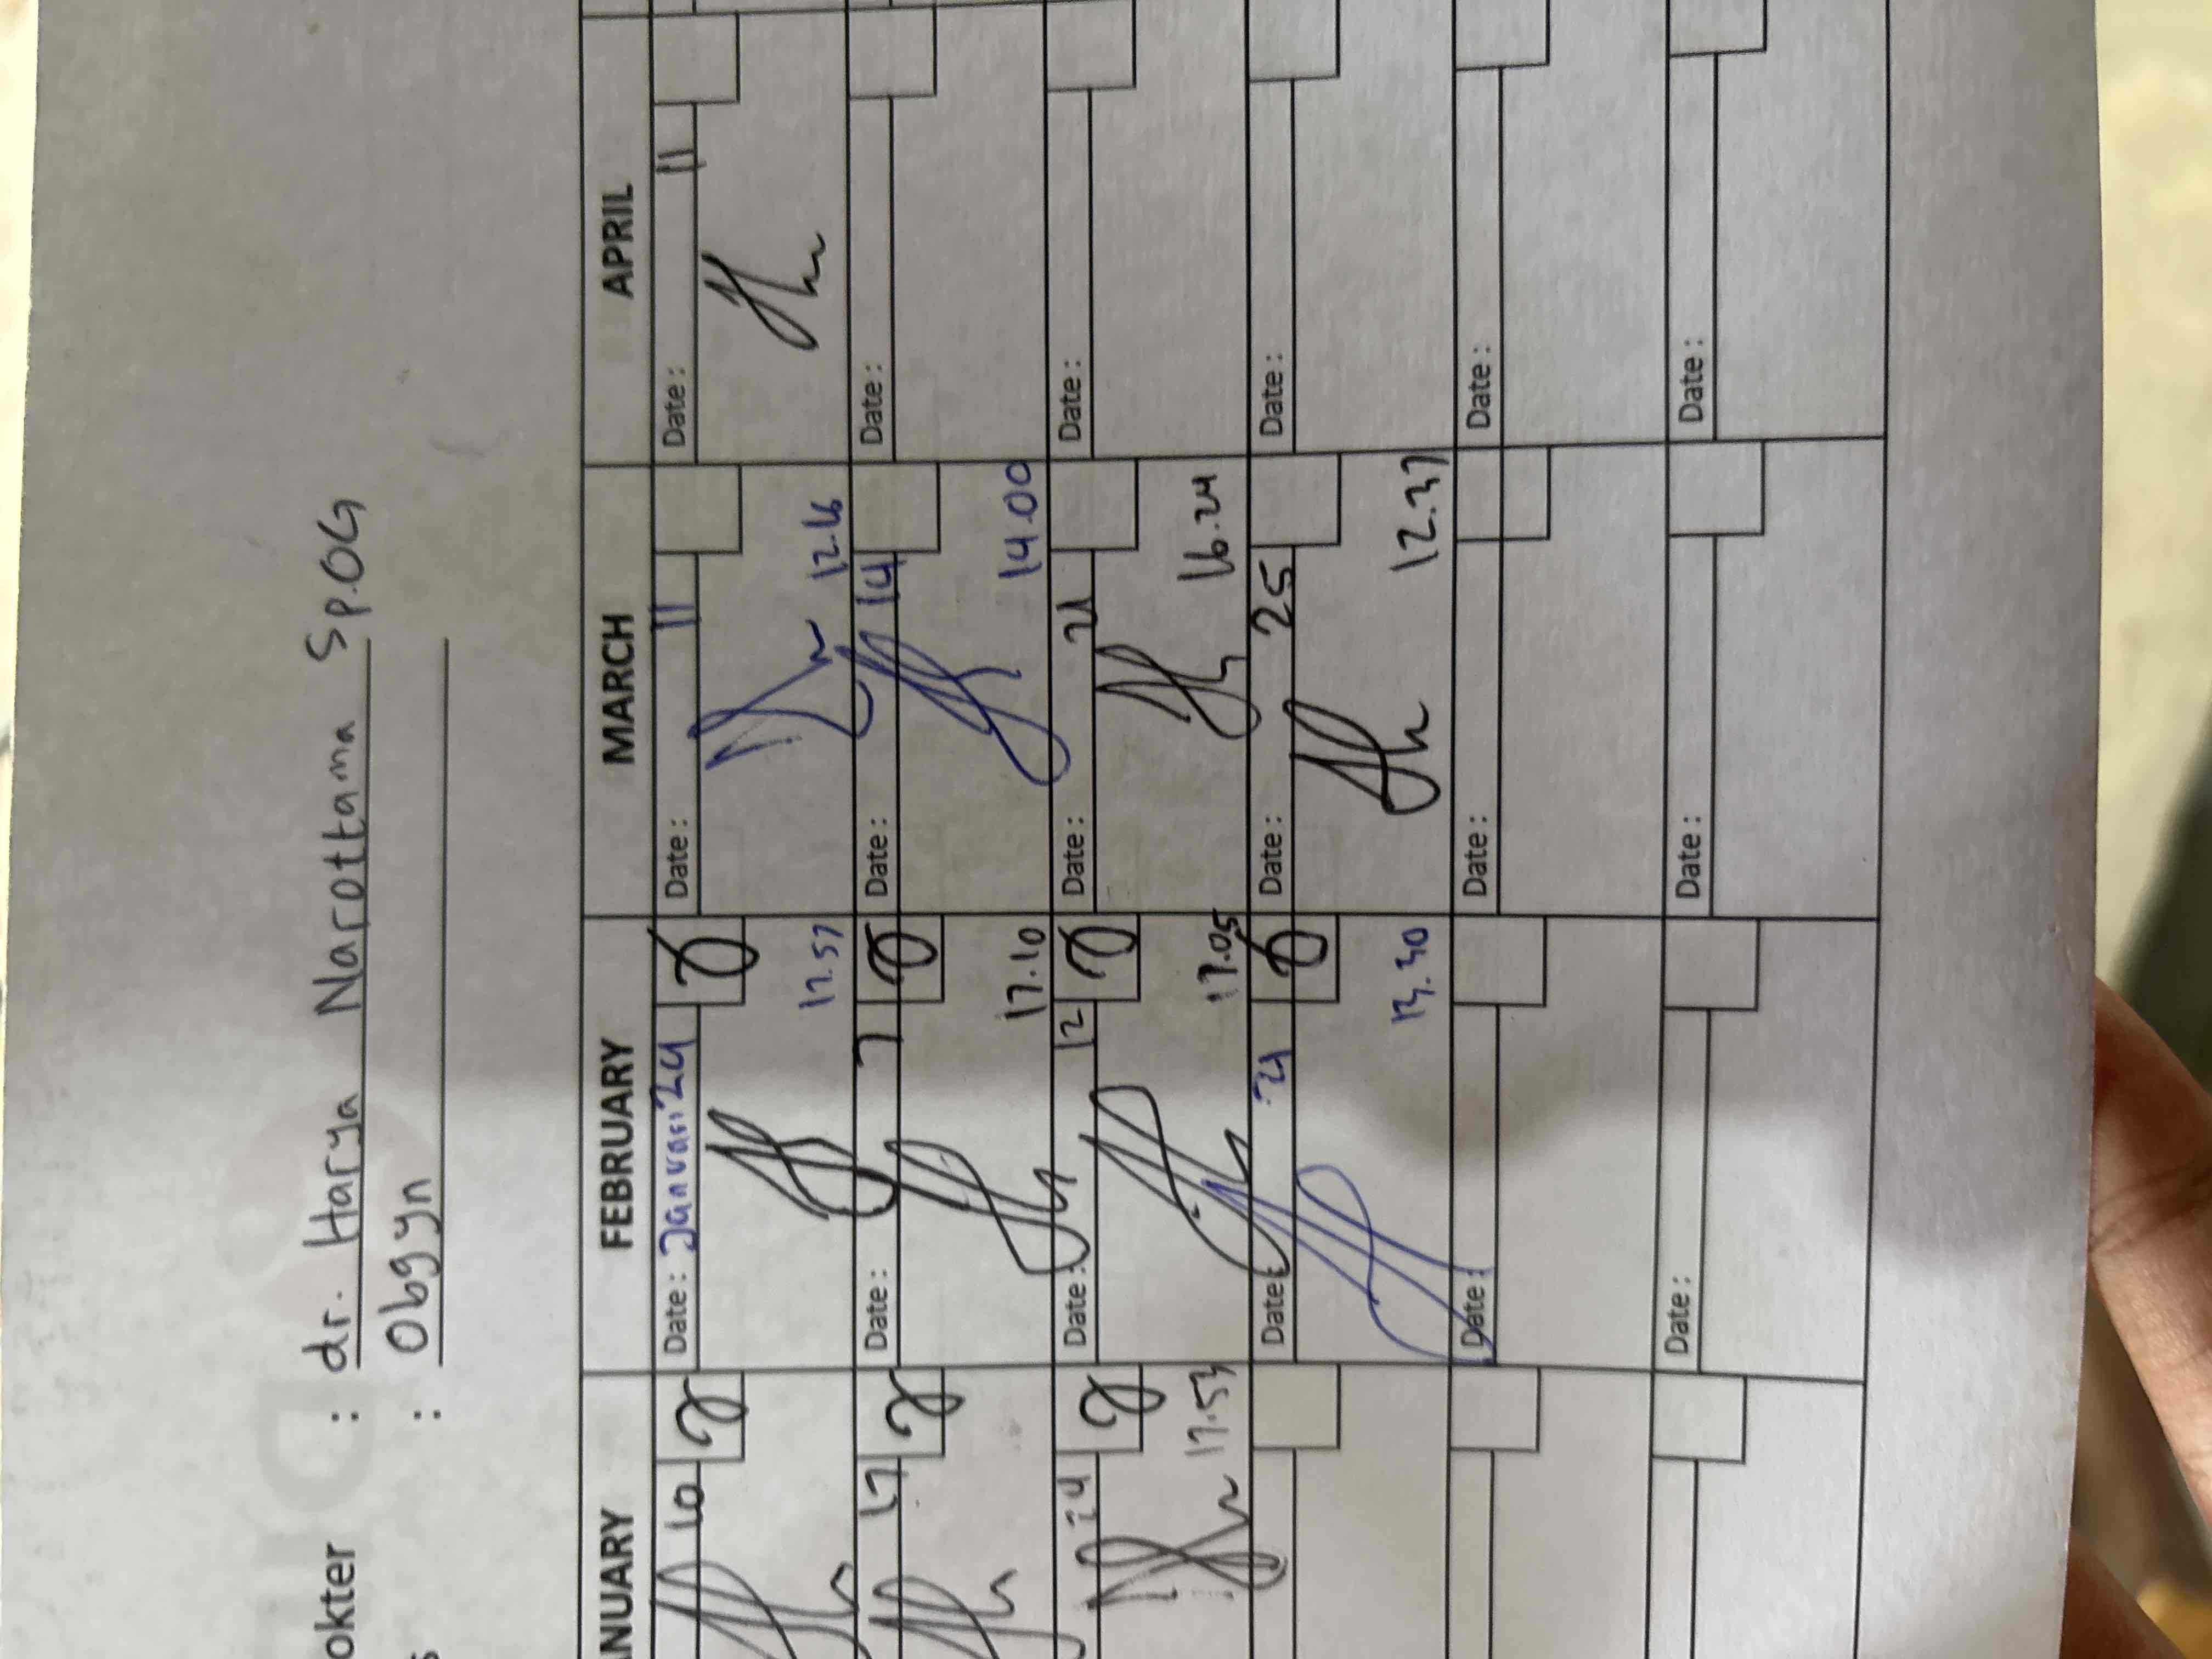 okter : dr. Harya Narottama Sp.OG
s : Obgyn
ANUARY FEBRUARY MARCH APRIL
10 Date: Januari 24 Date: 11 Date: 11
17.57 12.16
17 Date: 7 Date: 14 Date:
17.10 14.00
24 Date: 12 Date: 21 Date:
17.53 17.05 16.24
Date: 21 Date: 25 Date:
13.30 12.37
Date: Date: Date:
Date: Date: Date: